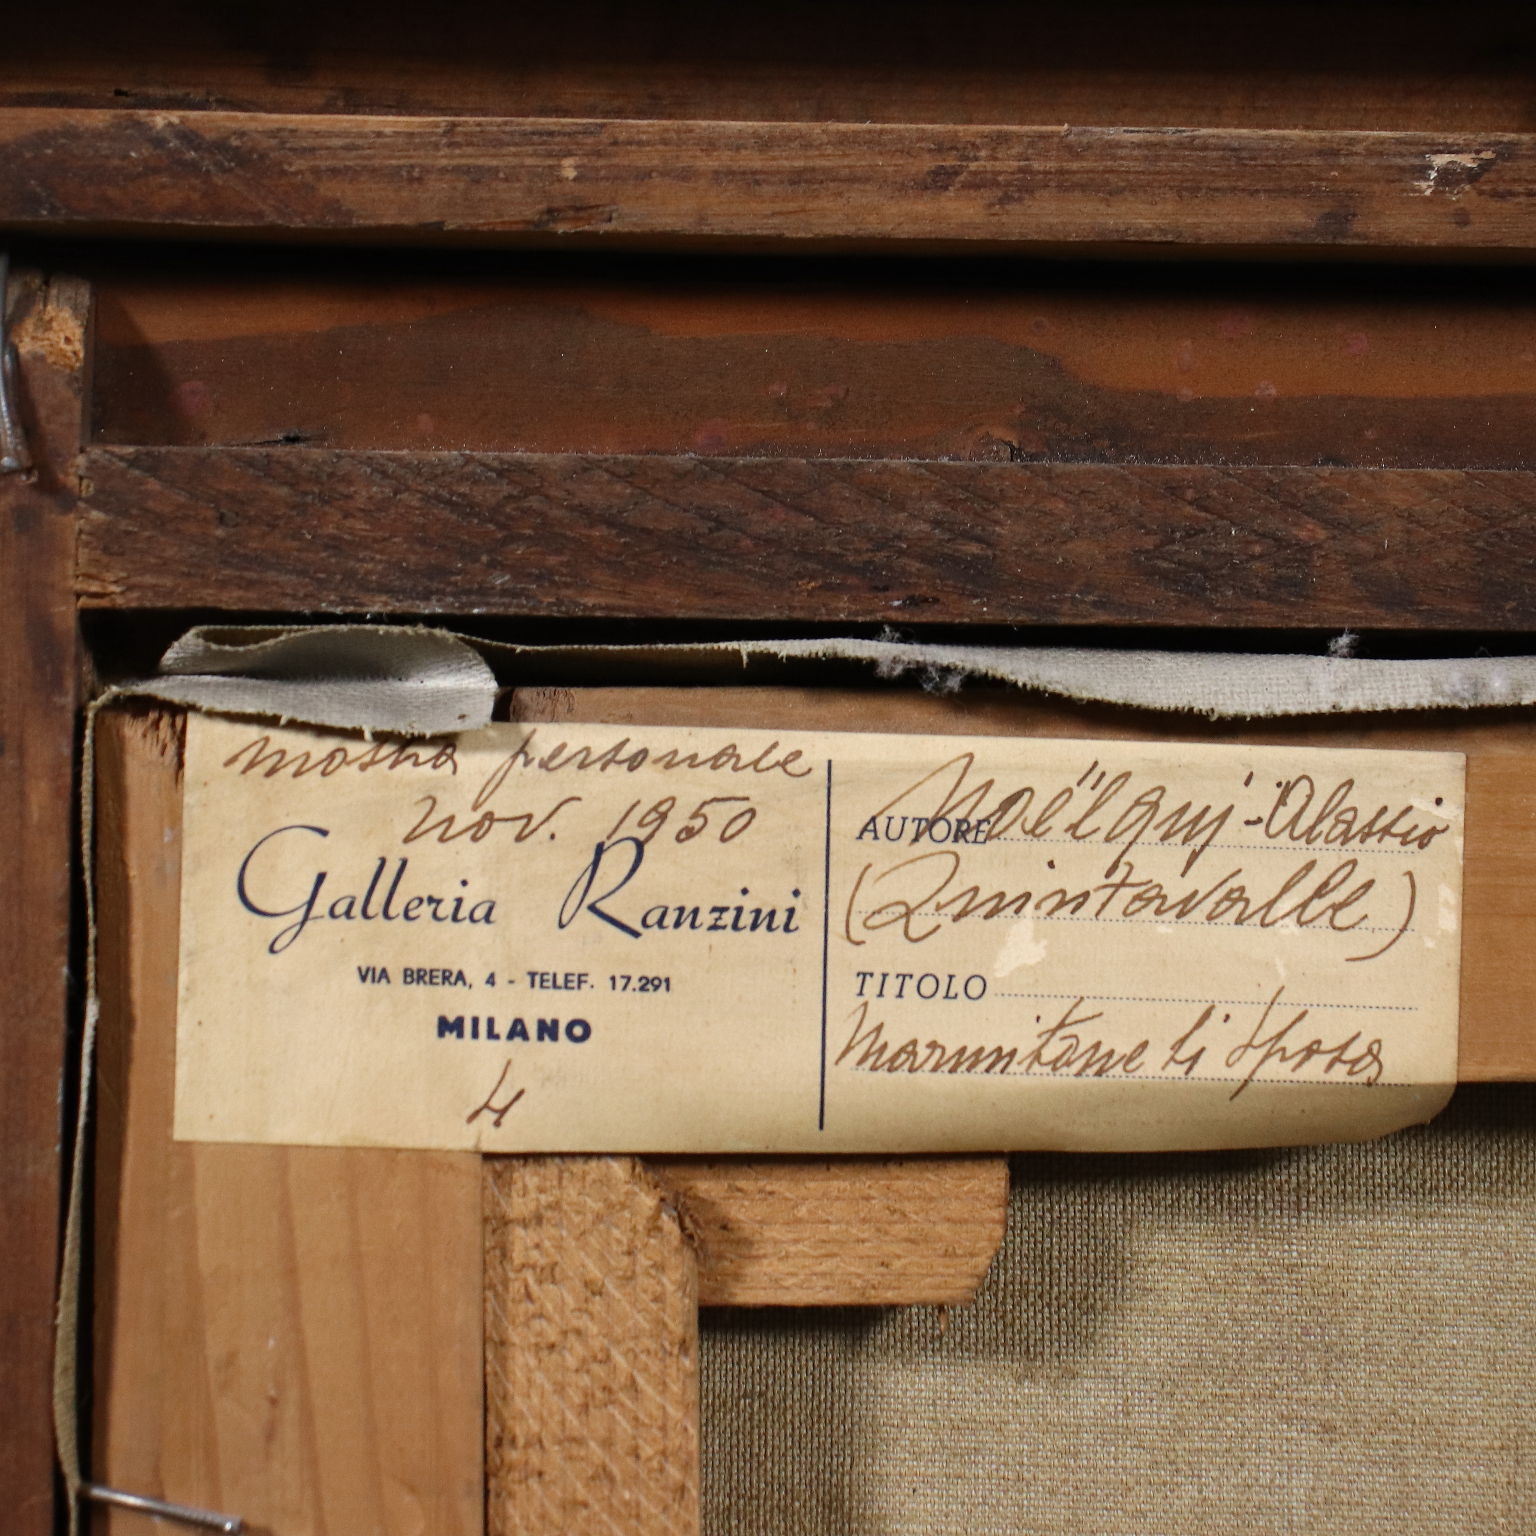 mostra personale
nov. 1950
Galleria Ranzini
VIA BRERA, 4 - TELEF. 17.291
MILANO
4
AUTORE Noëlquj - Alassio
(Quintavalle)
TITOLO
si sposa